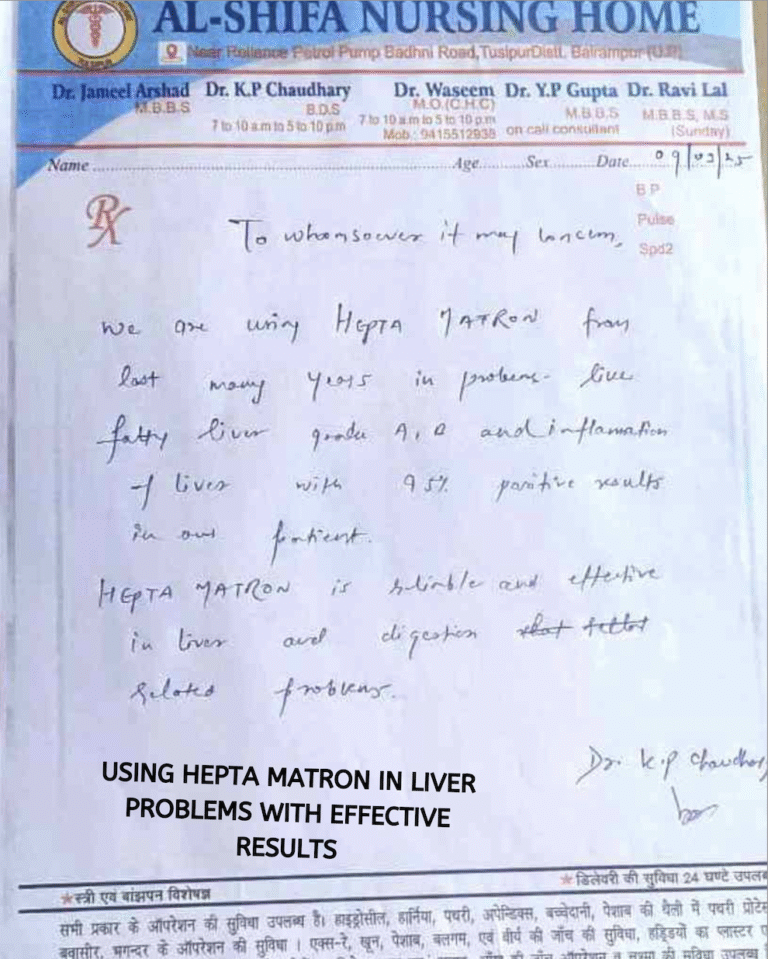 AL-SHIFA NURSING HOME
Near Reliance Petrol Pump Badhni Road, Tusipur Distt. Balrampur (U.P)
Dr. Jameel Arshad Dr. K.P Chaudhary Dr. Waseem Dr. Y.P Gupta Dr. Ravi Lal
M.B.B.S B.D.S M.O.(C.H.C) M.B.B.S M.B.B.S, M.S
7 to 10 a.m to 5 to 10 p.m 7 to 10 a.m to 5 to 10 p.m on call consultant (Sunday)
Mob.: 9415512938
Name Age Sex Date 09/02/25
Rx
BP
Pulse
Spd2
To whomsoever it may concern,
we are using HEPTA MATRON from
last many years in problems- live
fatty liver grade and inflamation
of liver with 95% positive results
in our patient.
HEPTA MATRON is reliable and effective
in liver and digestion
related problems.
Dr. K.P Chaudhary
USING HEPTA MATRON IN LIVER
PROBLEMS WITH EFFECTIVE
RESULTS
★स्त्री एवं बांझपन विशेषज्ञ ★डिलेवरी की सुविधा 24 घण्टे उपलब्
सभी प्रकार के ऑपरेशन की सुविधा उपलब्ध है। हाइड्रोसील, हार्निया, पथरी, अपेन्डिक्स, बच्चेदानी, पेशाब की थैली में पथरी प्रोटे
बवासीर, भगन्दर के ऑपरेशन की सुविधा । एक्स-रे, खून, पेशाब, बलगम, एवं वीर्य की जाँच की सुविधा, हड्डियों का प्लास्टर ए